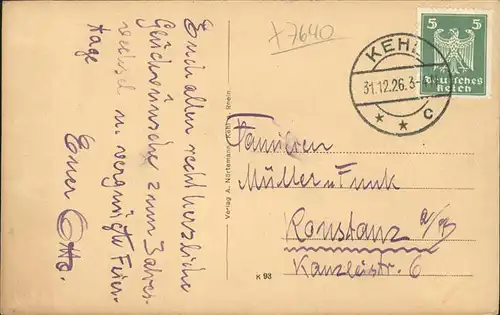 Euch allen recht herzliche
Glückwünsche zum Jahres-
wechsel u. vergnügte Feier-
tage
Euer Otto.
x7640
Verlag A. Nörtemann, Kehl a. Rhein
K 98
KEHL
31.12.26.3-
* * c
5 5
Deutsches
Reich
Familien
Müller u Funk
Konstanz a/B
Kanzleistr. 6